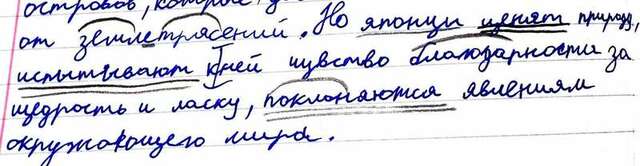 островов, которые
от землетрясений. Но японцы ценят природу,
испытывают к ней чувство благодарности за
щедрость и ласку, поклоняются явлениям
окружающего мира.